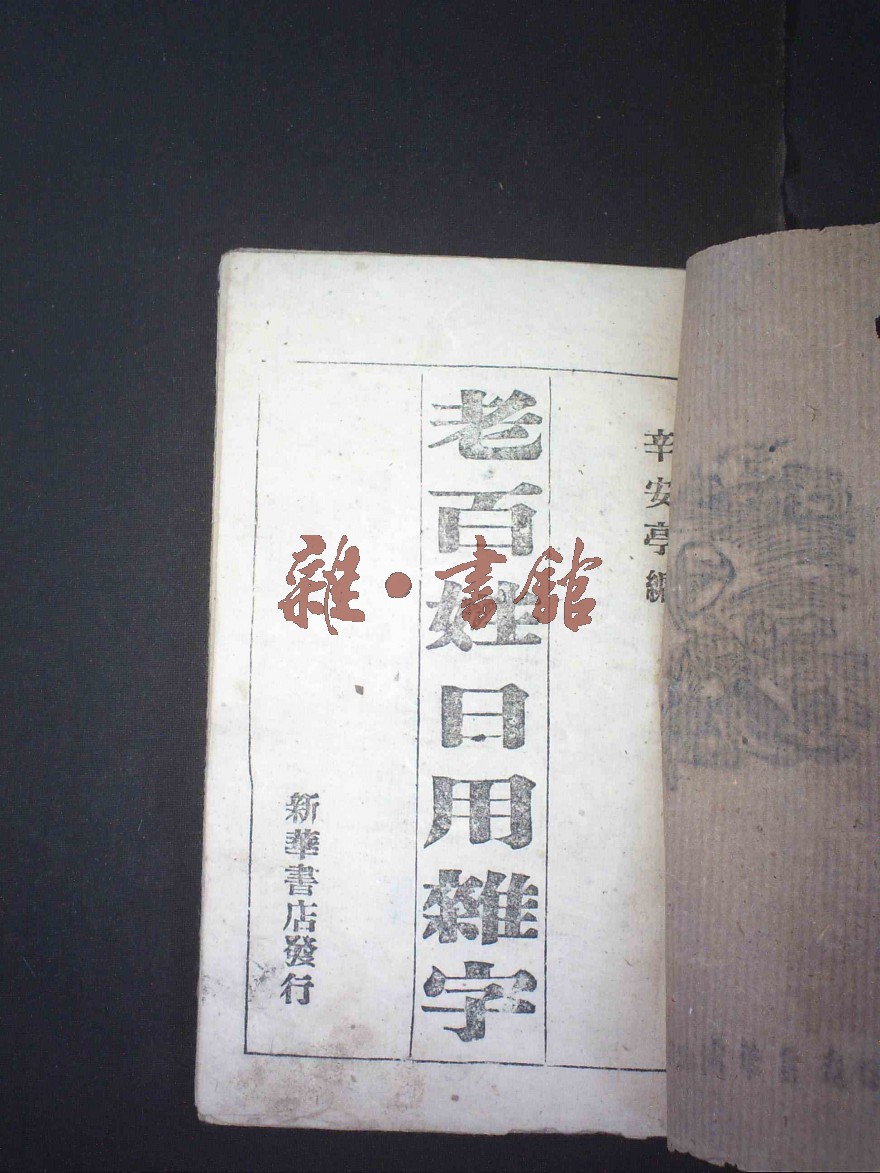 辛安亭編
老百姓日用雜字
新華書店發行
雜·書館